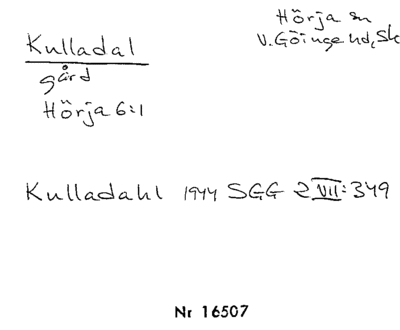 Kulladal
gård
Hörja 6:1
Hörja sn
V. Göinge hd, Sk
Kulladahl 1944 SGG 2 VII: 349
Nr 16507